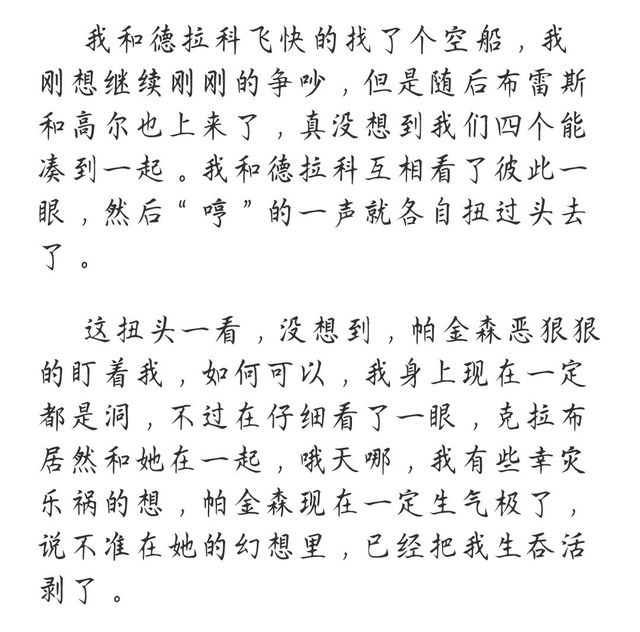 我和德拉科飞快的找了个空船，我
刚想继续刚刚的争吵，但是随后布雷斯
和高尔也上来了，真没想到我们四个能
凑到一起。我和德拉科互相看了彼此一
眼，然后“哼”的一声就各自扭过头去
了。
这扭头一看，没想到，帕金森恶狠狠
的盯着我，如何可以，我身上现在一定
都是洞，不过在仔细看了一眼，克拉布
居然和她在一起，哦天哪，我有些幸灾
乐祸的想，帕金森现在一定生气极了，
说不准在她的幻想里，已经把我生吞活
剥了。